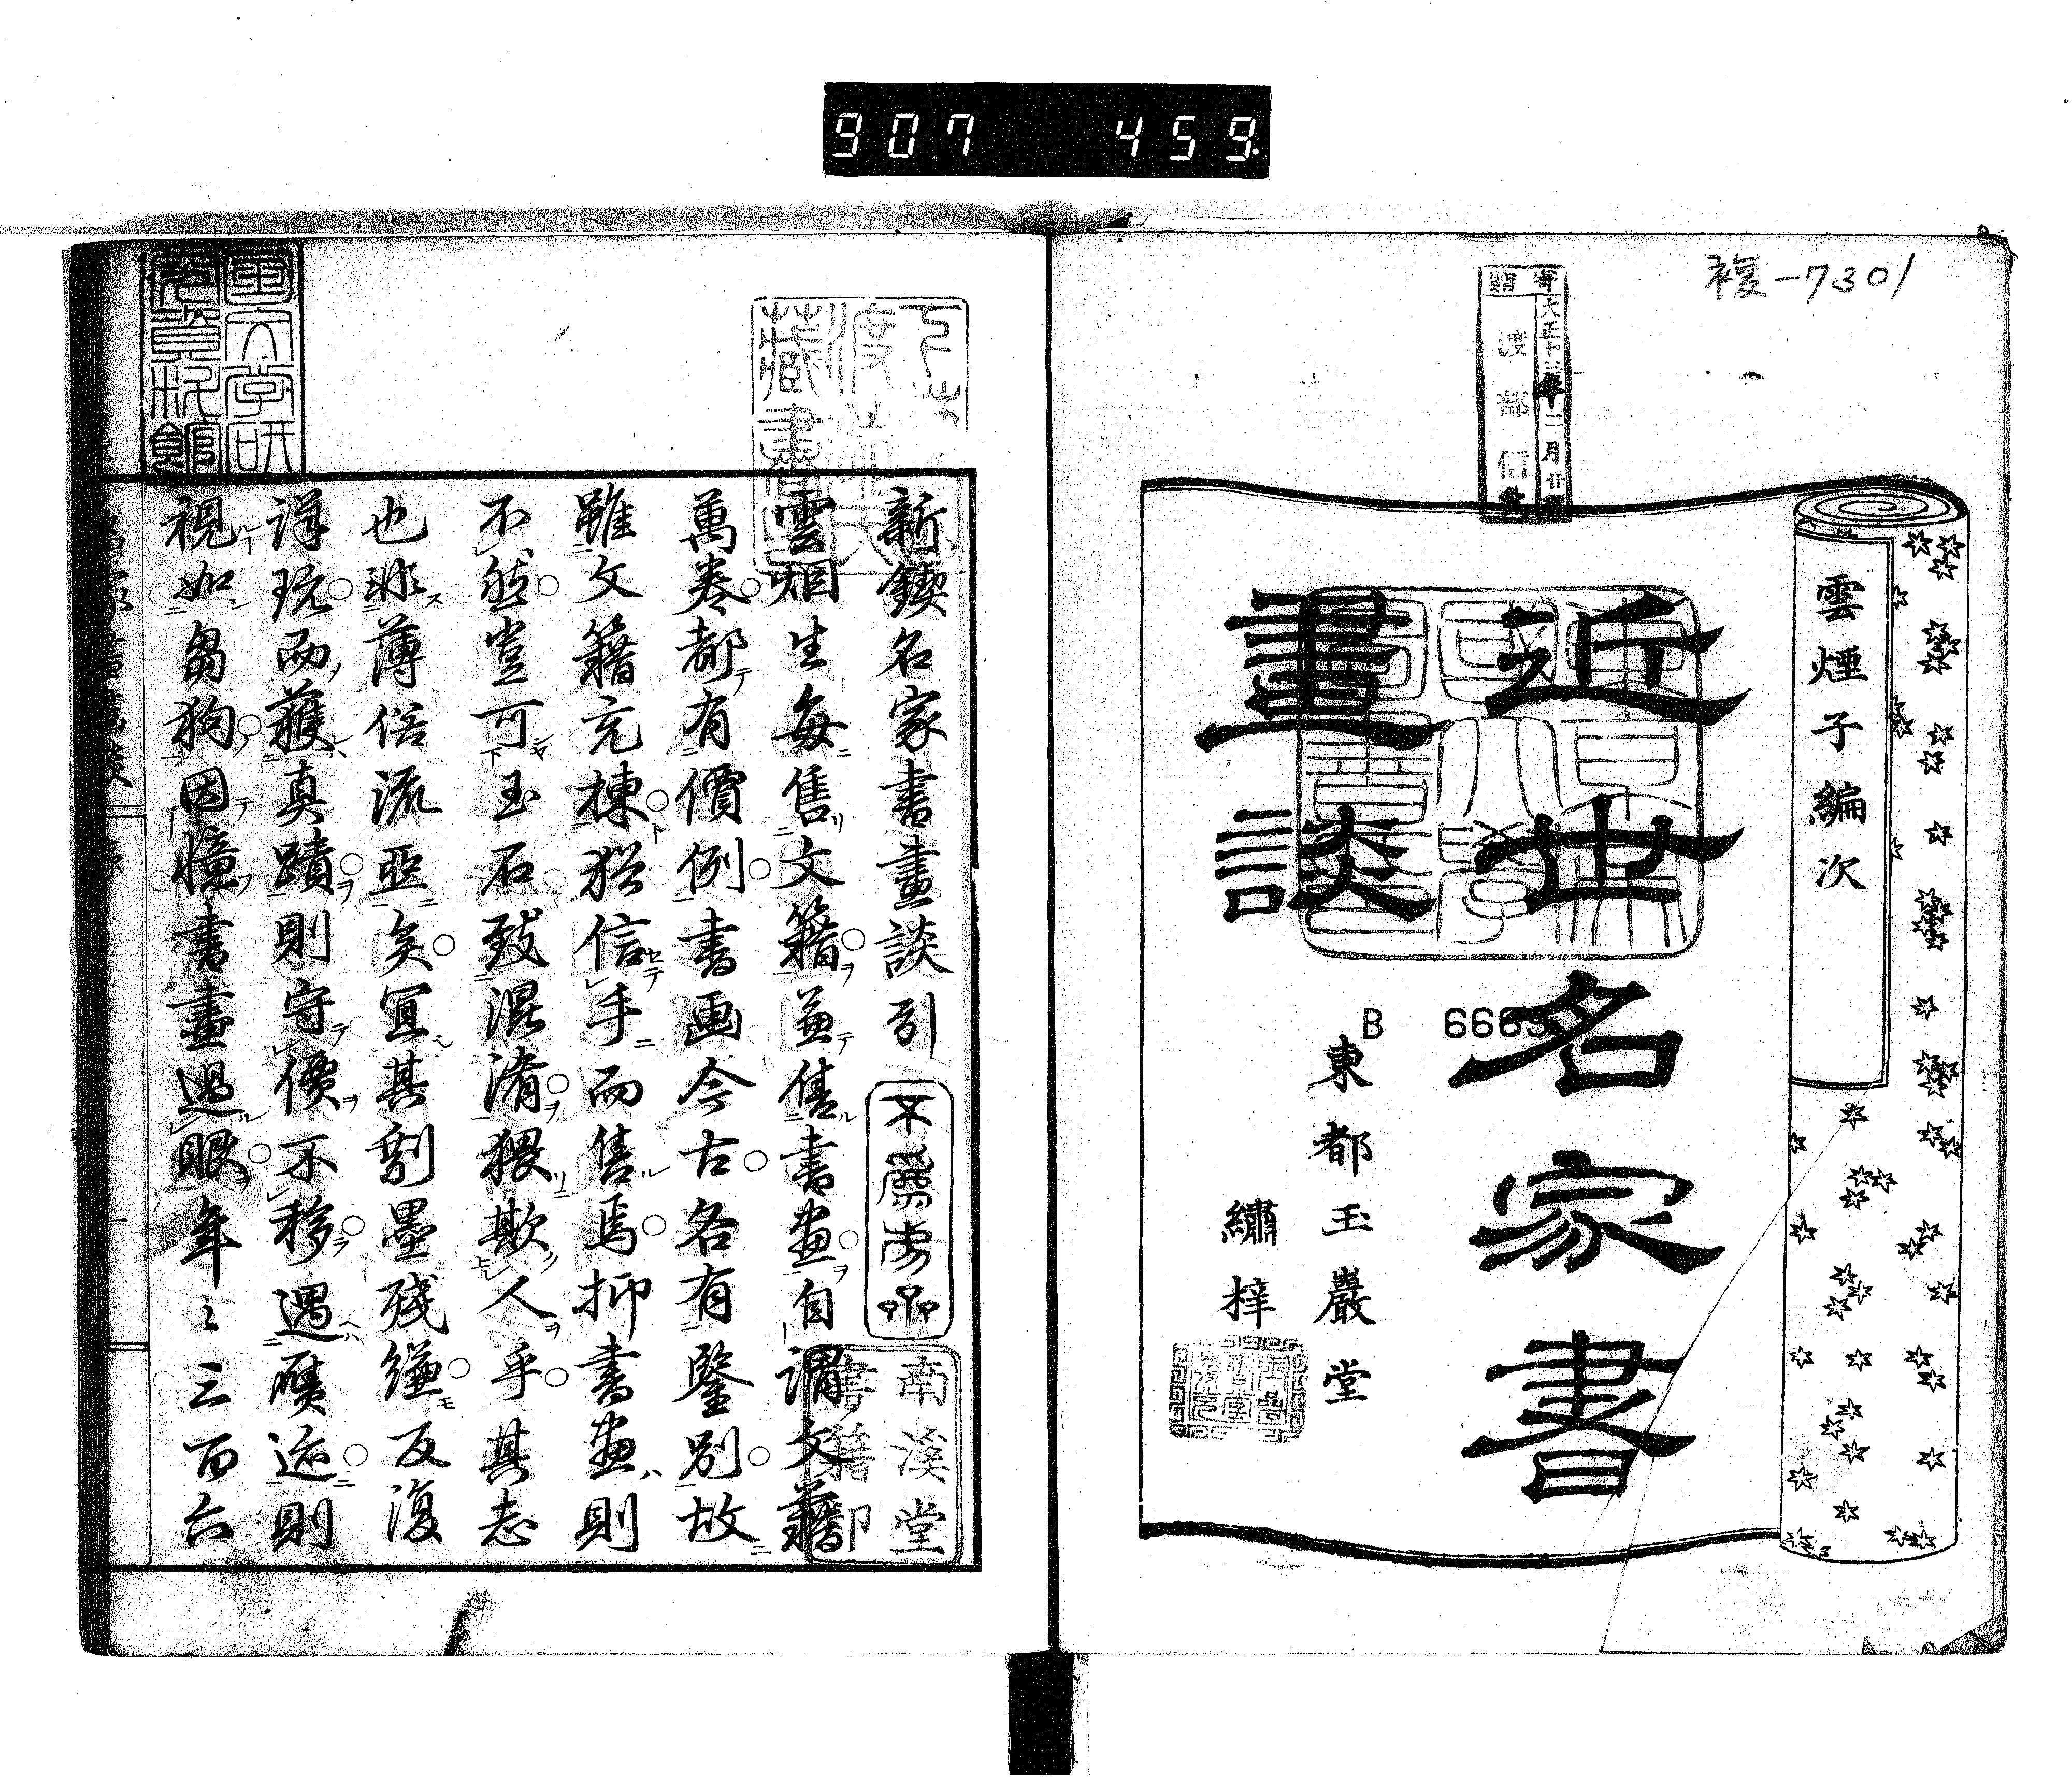 907 459
複-7301
寄贈
大正十三年二月廿
渡部信
雲煙子編次
近世名家書
畫談
B 6663
東都玉巖堂
繡梓
新鍥名家書畫談引
南溪堂
書籍印
雲烟生每售文籍兼售書畫自謂文籍
萬卷都有價例書画今古各有鑒別故
雖文籍充棟猶信手而售焉抑書畫則
不然豈可玉石致混淆猥欺人乎其志
也非薄俗流亞矣宜其剩墨殘縑反復
詳玩而獲真蹟則守價不移遇贋迹則
視如芻狗因憶書畫過眼年〻三百六